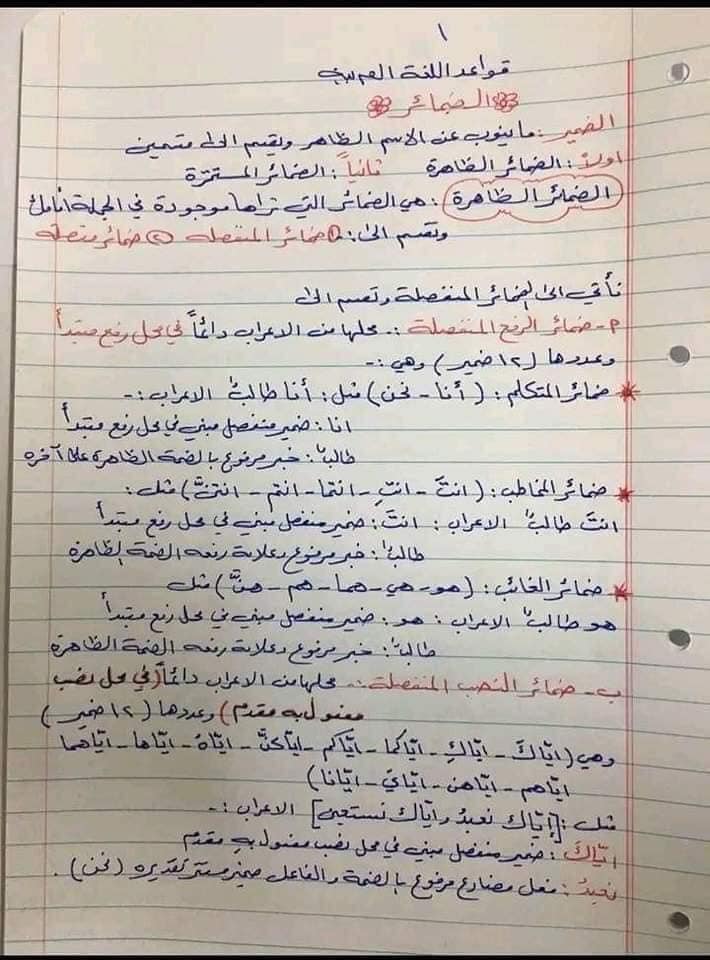 ١
قواعد اللغة العربية
الضمائر
الضمير : ما ينوب عن الاسم الظاهر ويقسم الى قسمين
اولاً : الضمائر الظاهرة ثانياً : الضمائر المستترة
الضمائر الظاهرة : هي الضمائر التي تراها موجودة في الجملة أمامك
وتقسم الى : ① ضمائر المنفصلة ② ضمائر متصلة
نأتي الى الضمائر المنفصلة وتقسم الى
أ - ضمائر الرفع المنفصلة :- محلها من الاعراب دائماً في محل رفع مبتدأ
وعددها (١٢ ضمير) وهي :-
* ضمائر المتكلم : (أنا - نحن) مثل : أنا طالبٌ الاعراب :-
انا : ضمير منفصل مبني في محل رفع مبتدأ
طالبٌ : خبر مرفوع بالضمة الظاهرة على آخره
* ضمائر المخاطب : (انتَ - انتِ - انتما - انتم - انتنَّ) مثل :
انتَ طالبٌ الاعراب : انتَ : ضمير منفصل مبني في محل رفع مبتدأ
طالبٌ : خبر مرفوع وعلامة رفعه الضمة الظاهرة
* ضمائر الغائب : (هو - هي - هما - هم - هنَّ) مثل
هو طالبٌ الاعراب : هو : ضمير منفصل مبني في محل رفع مبتدأ
طالبٌ : خبر مرفوع وعلامة رفعه الضمة الظاهرة
ب - ضمائر النصب المنفصلة :- محلها من الاعراب دائماً (في محل نصب
مفعول به مقدم) وعددها (١٢ ضمير)
وهي (ايّاكَ - ايّاكِ - ايّاكما - ايّاكم - ايّاكنَّ - ايّاهُ - ايّاها - ايّاهما
ايّاهم - ايّاهن - ايّايَ - ايّانا)
مثل : [إيّاك نعبدُ وايّاك نستعين] الاعراب :-
ايّاكَ : ضمير منفصل مبني في محل نصب مفعول به مقدم
نعبدُ : فعل مضارع مرفوع بالضمة والفاعل ضمير مستتر تقديره (نحن) .